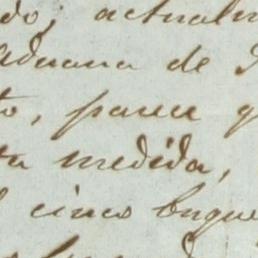 do; actualm
Aduana de
to, parece q
ta medida,
cinco buque